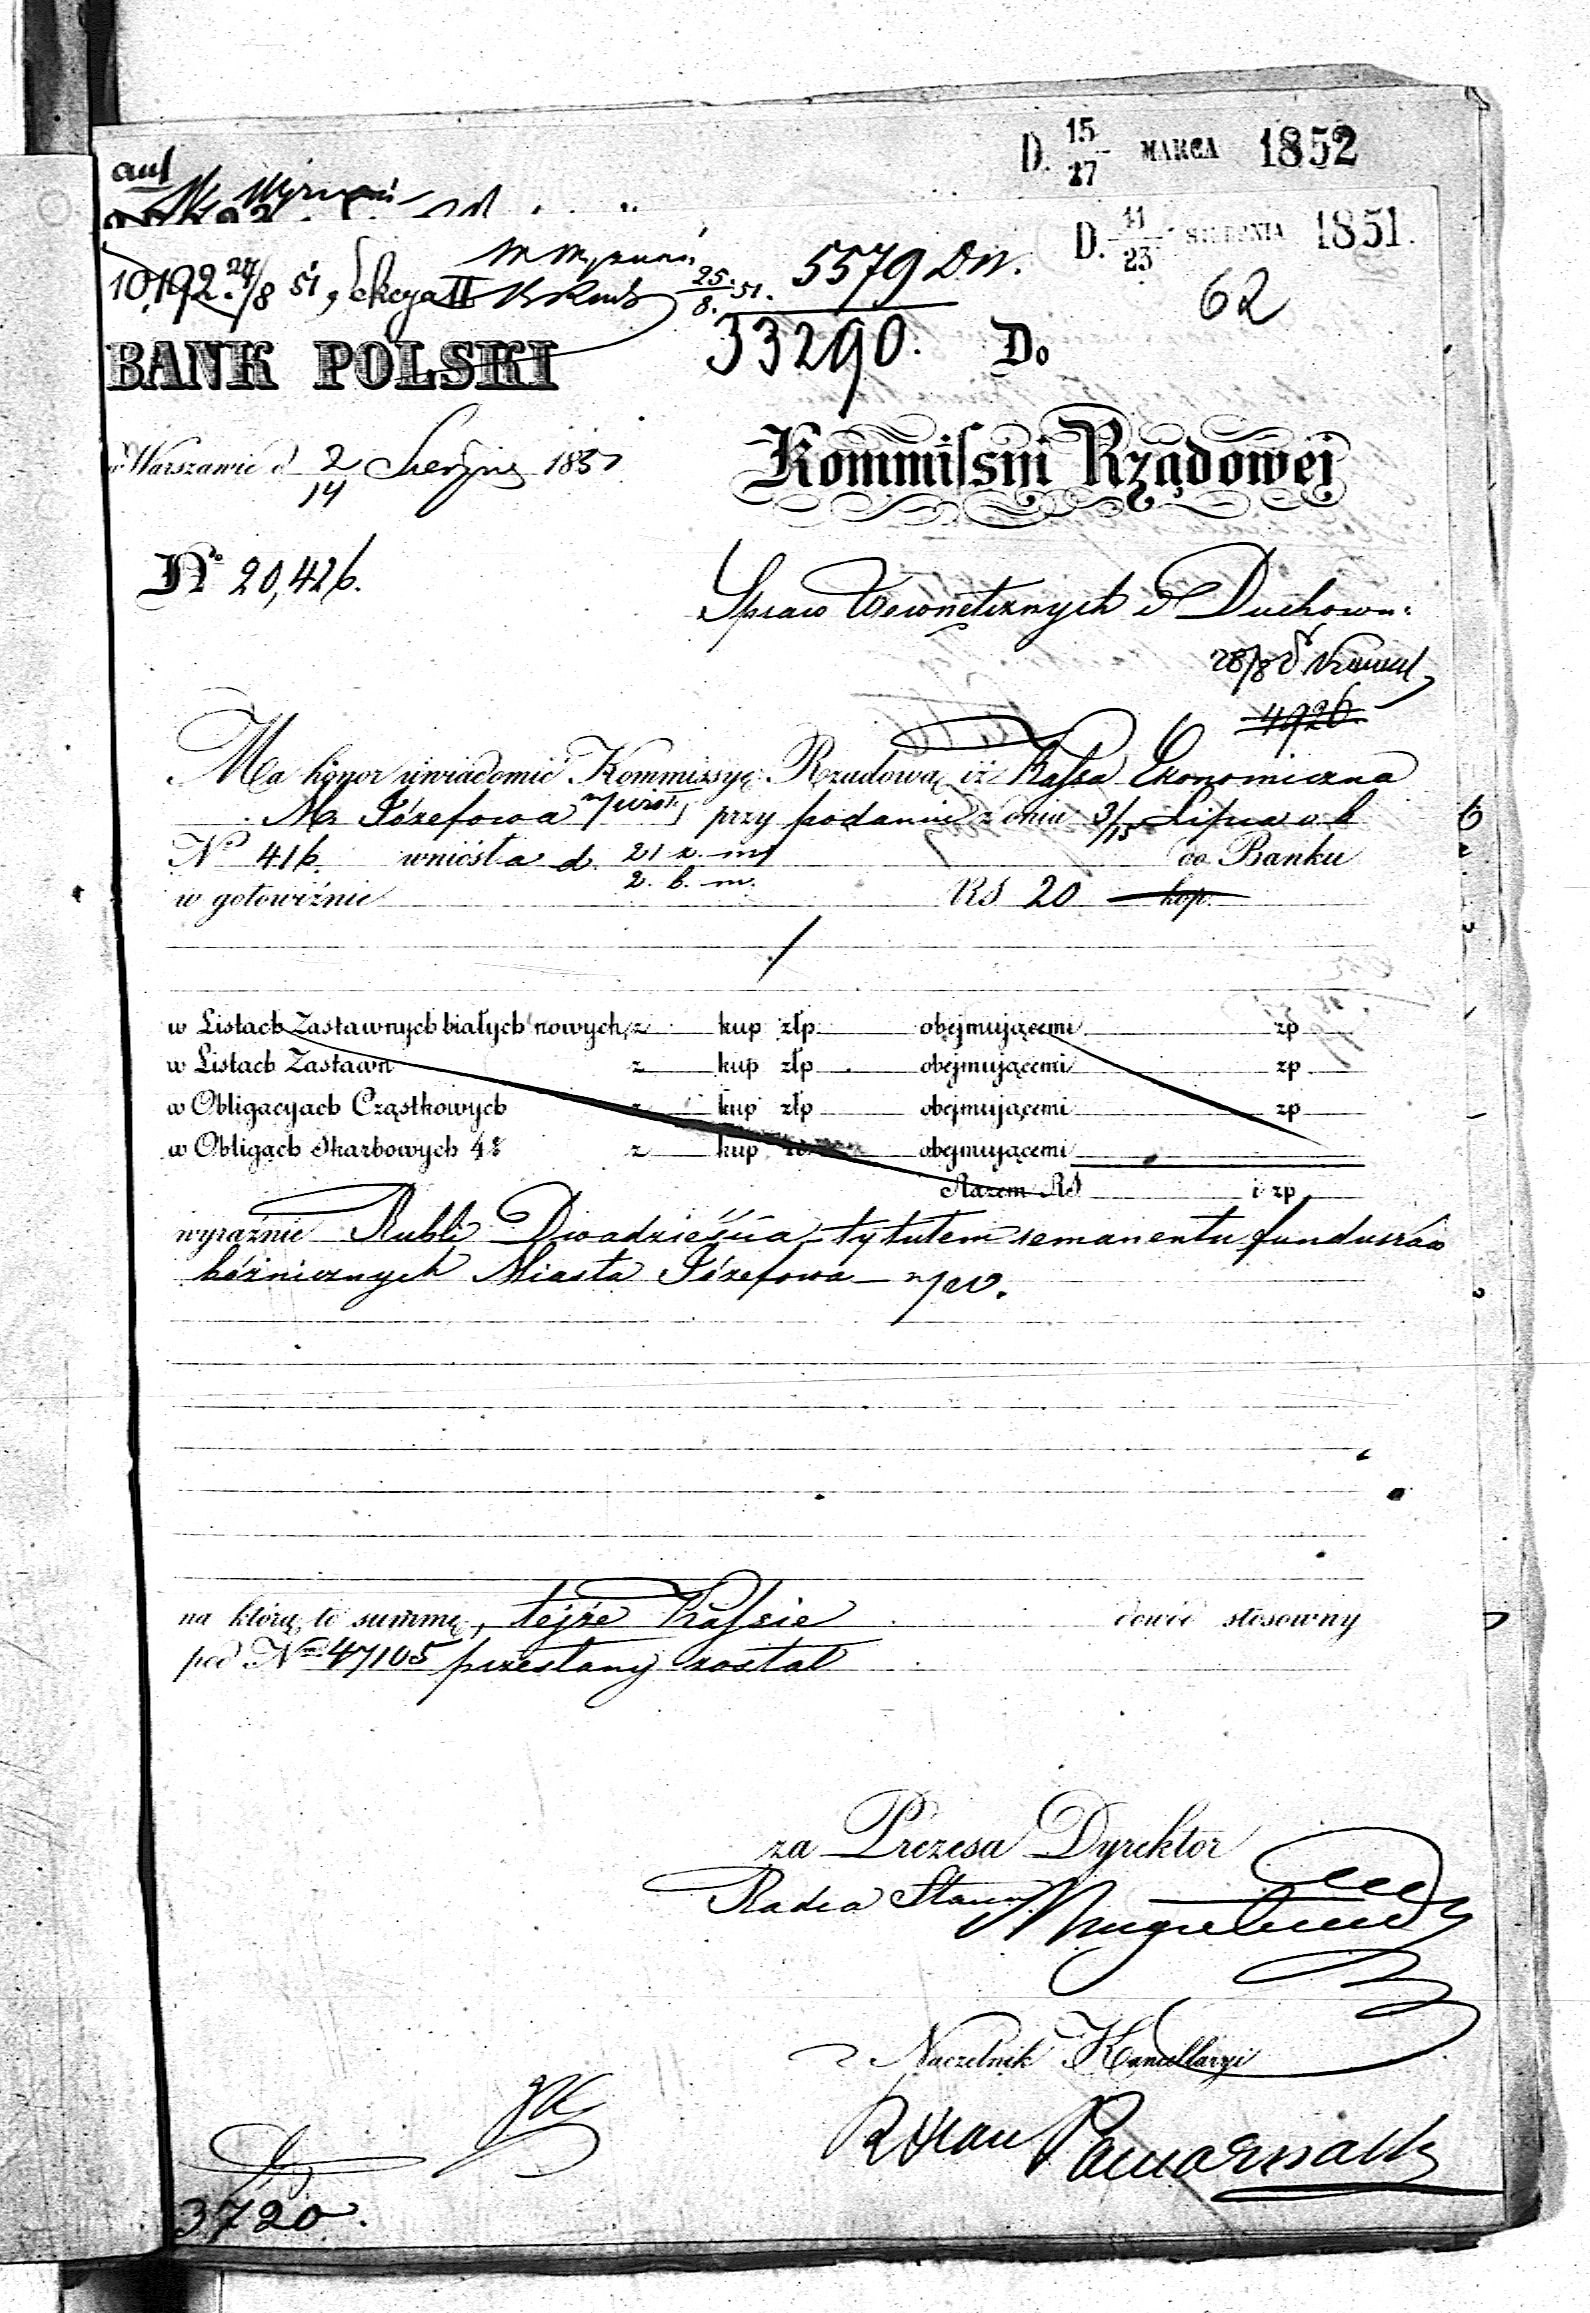 D. 15/27 MARCA 1852
D. 11/23 SIERPNIA 1851.
62
10192. 24/8 51, Sekcya II
25/8. 51. 5579 DW.
33290.
BANK POLSKI
Do
Kommissyi Rządowej
w Warszawie d 2/14 Sierpnia 1851
No 20,426.
Spraw Wewnętrznych i Duchown:
28/8
4926.
Ma honor uwiadomić Kommissyę Rządową iż Kassa Ekonomiczna
Ma Józefowa n/wisłą przy podaniu z dnia 3/15 Lipca r b
No 416. wniosła d. 21 z. m. do Banku
2. b. m.
w gotowiźnie RS 20 kop.
w Listach Zastawnych białych nowych, z kup złp. obejmującemi zp
w Listach Zastawn z kup złp obejmującemi zp
w Obligacyach Cząstkowych z kup złp obejmującemi zp
w Obligach Skarbowych 4% z kup obejmującemi
Razem RS i zp
wyraźnie Rubli Dwadzieścia tytułem remanentu funduszów
bóżnicznych Miasta Józefowa n/w.
na którą to summę, tejże Kassie dowód stosowny
pod Nm 47105 przesłany został
za Prezesa Dyrektor
Radca Stanu
Naczelnik Kancellaryi
3720.